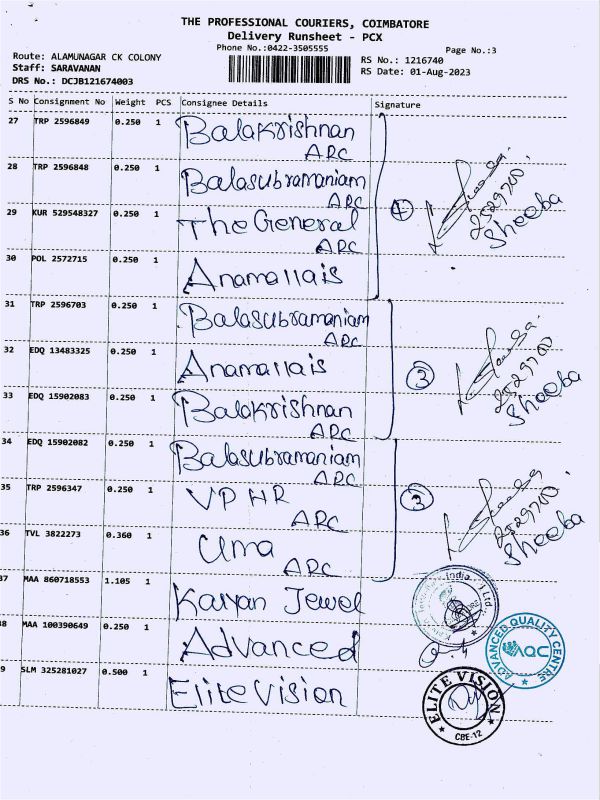 THE PROFESSIONAL COURIERS, COIMBATORE
Delivery Runsheet - PCX
Phone No.:0422-3505555
Page No.:3
Route: ALAMUNAGAR CK COLONY
Staff: SARAVANAN
DRS No.: DCJB121674003
RS No.: 1216740
RS Date: 01-Aug-2023
S No Consignment No Weight PCS Consignee Details Signature
27 TRP 2596849 0.250 1 Balakrishnan
ARC
28 TRP 2596848 0.250 1 Balasubramaniam
ARC
29 KUR 529548327 0.250 1 The General
ARC
30 POL 2572715 0.250 1 Anamallais
4
2529700
Sheeba
31 TRP 2596703 0.250 1 Balasubramaniam
ARC
32 EDQ 13483325 0.250 1 Anamallais
33 EDQ 15902083 0.250 1 Balakrishnan
ARC
3
2529700
Sheeba
34 EDQ 15902082 0.250 1 Balasubramaniam
ARC
35 TRP 2596347 0.250 1 VPHR
ARC
36 TVL 3822273 0.360 1 Uma
ARC
3
2529700
Sheeba
37 MAA 860718553 1.105 1 Kalyan Jewel
38 MAA 100390649 0.250 1 Advanced
39 SLM 325281027 0.500 1 Elite Vision
India
Ltd.
ADVANCED QUALITY CENTRE
AQC
ELITE VISION
CBE-12